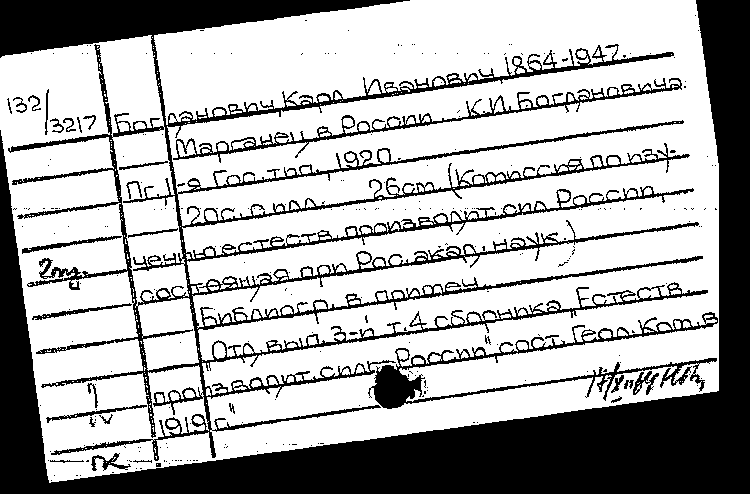 132/3217
Богданович, Карл Иванович, 1864-1947.
Марганец в России... К.И. Богдановича.
Пг., 1-я Гос. тип., 1920.
20с. с илл. 26см. (Комиссия по изу-
чению естеств. производит. сил России,
состоящая при Рос. акад. наук.)
Библиогр. в примеч.
"Отд. вып. 3-й т. 4 сборника "Естеств.
производит. силы России", сост. Геол. Ком. в
1919 г."
2 экз.
IV
ПК